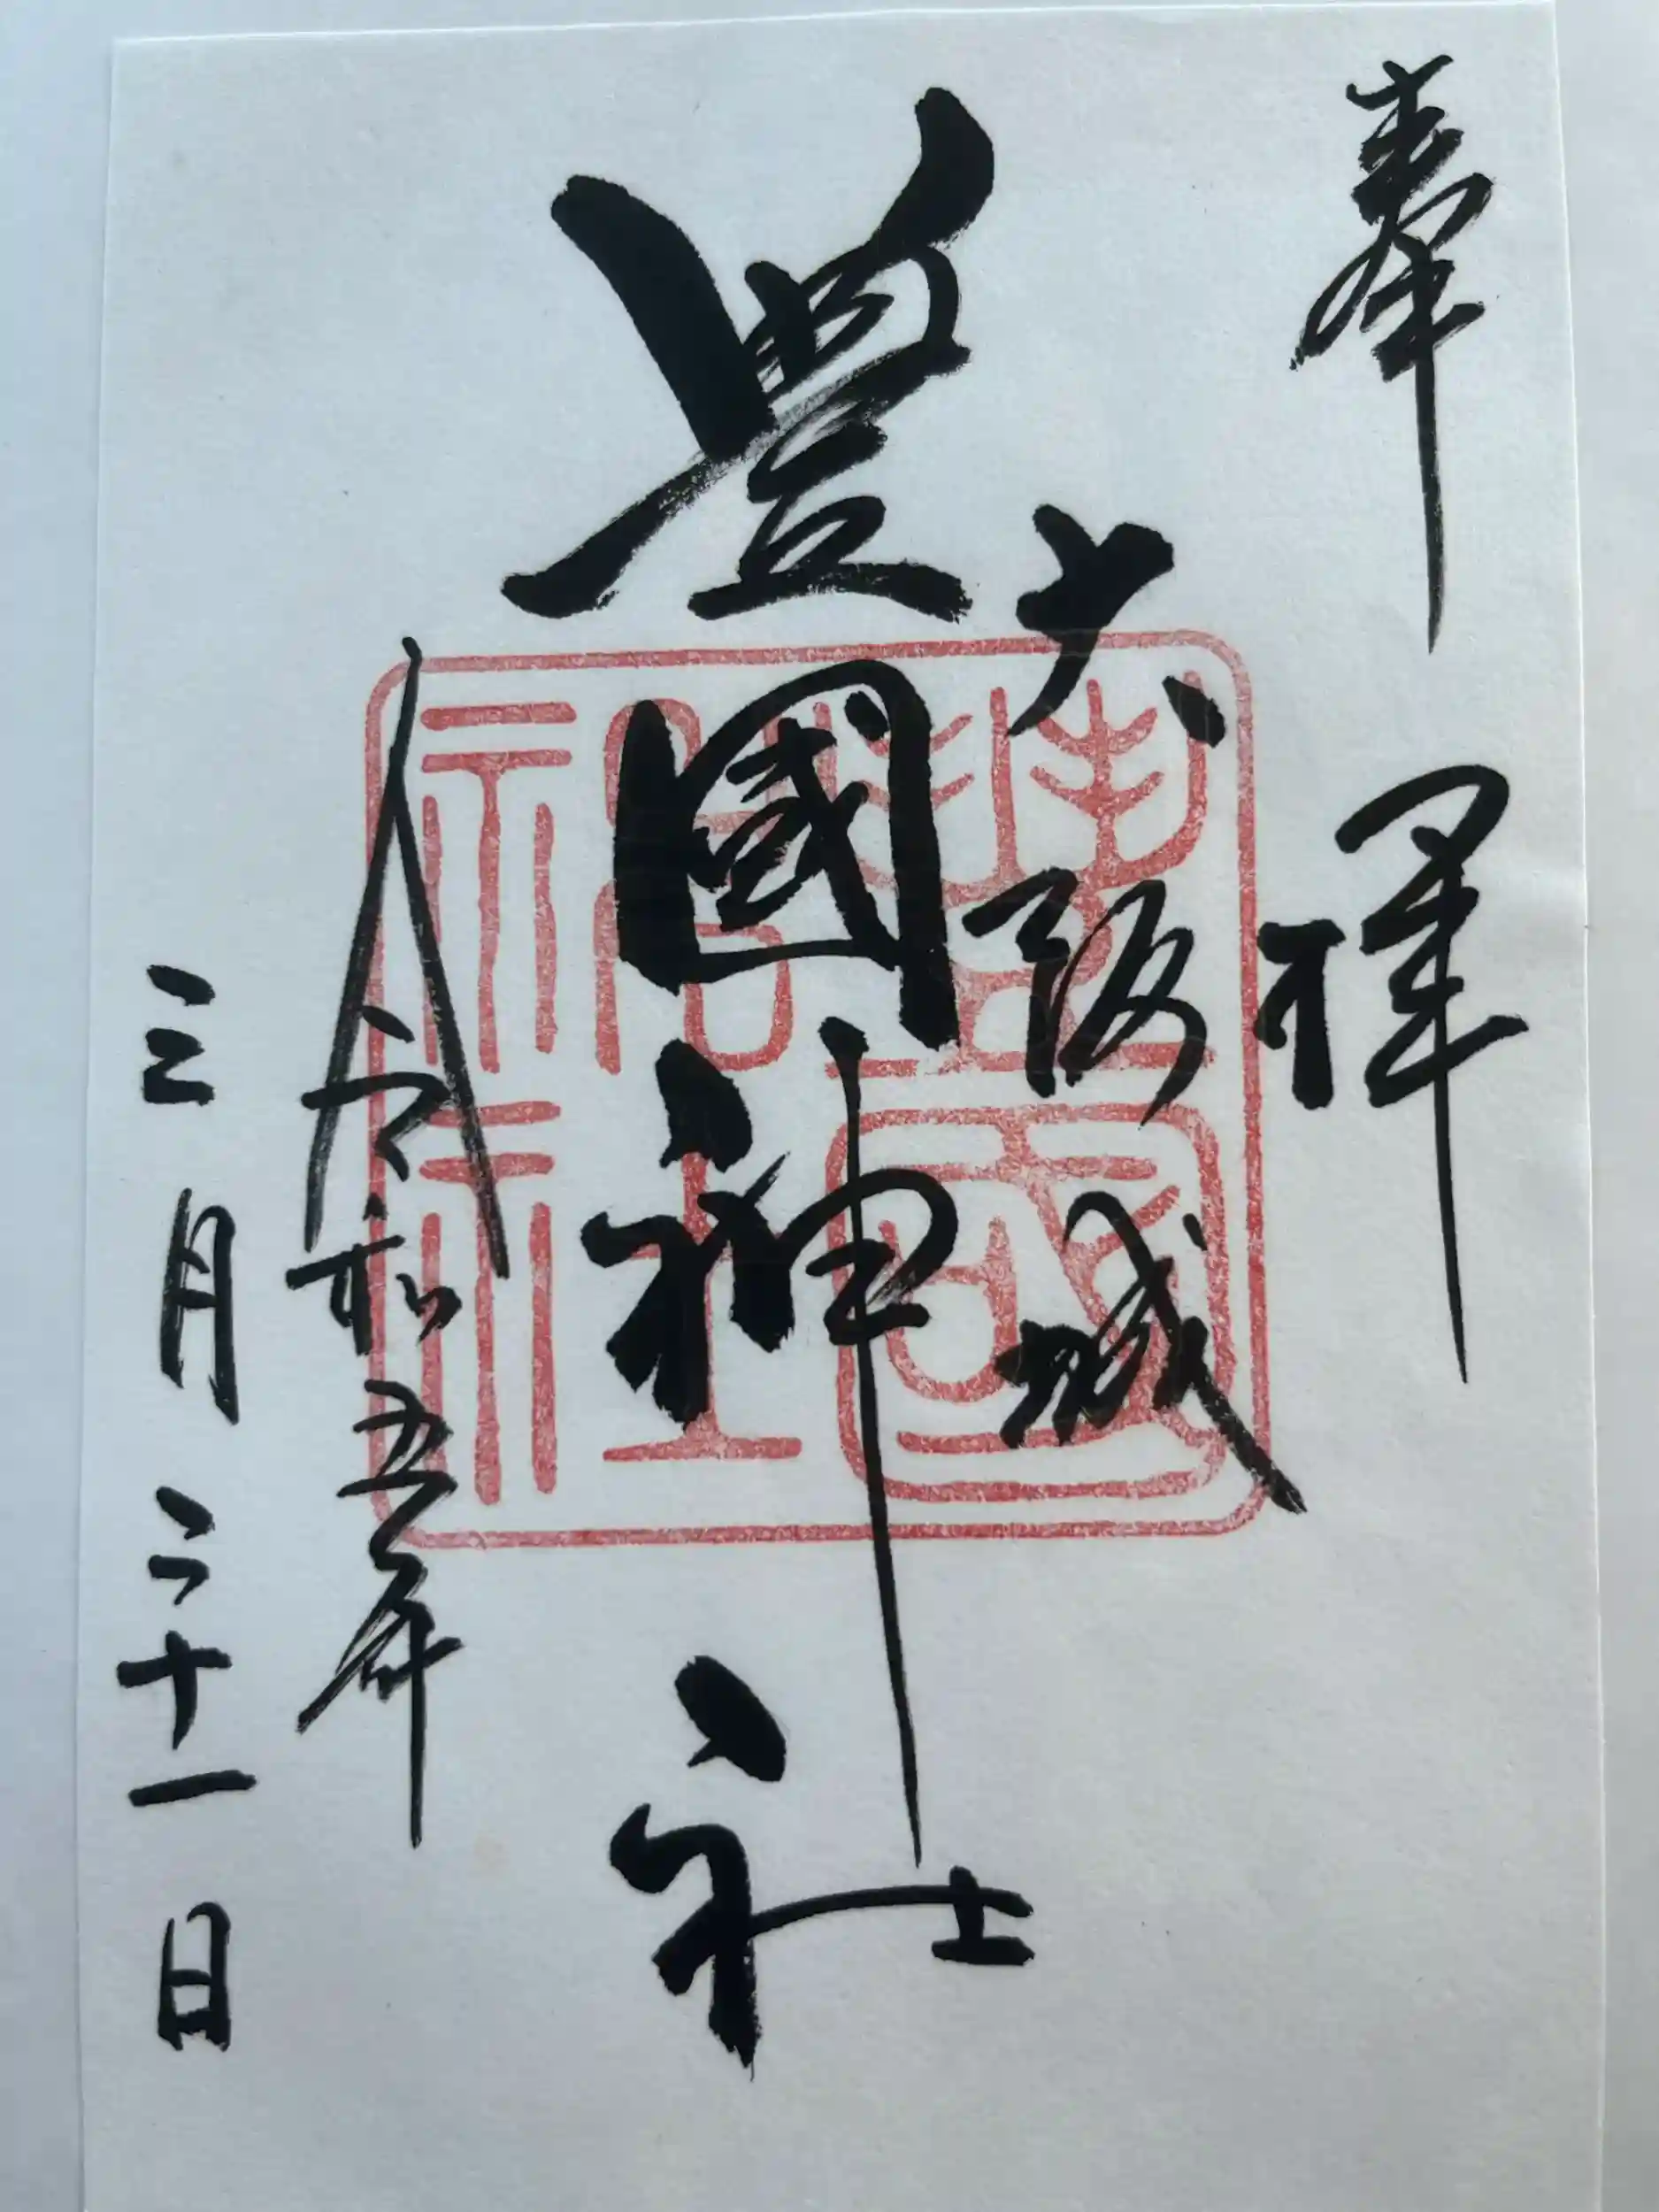 奉拝
大阪城
豊國神社
令和五年
三月二十一日
豊國神社